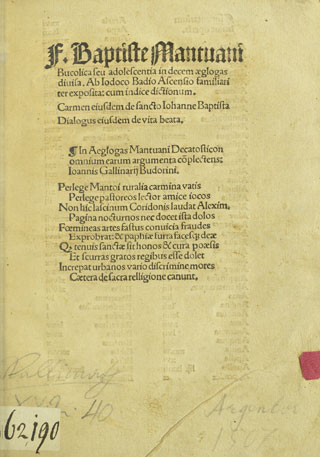 F. Baptiste Mantuani
Bucolica seu adolescentia in decem æglogas
diuisa. Ab Iodoco Badio Ascensio familiari
ter exposita: cum indice dictionum.
Carmen eiusdem de sancto Iohanne Baptista
Dialogus eiusdem de vita beata.
¶ In Aeglogas Mantuani Decatosticon
omnium earum argumenta cõplectens;
Ioannis Gallinarij Budorini.
Perlege Mantoi ruralia carmina vatis
Perlege pastoreos lector amice iocos
Non hic lasciuum Coridonis laudat Alexim,
Pagina nocturnos nec docet ista dolos
Fœmineas artes fastus conuicia fraudes
Exprobrat: & paphiæ furta facesq; deæ
Q tenuis sanctæ sit honos & cura poæsis
Et scurras gratos regibus esse dolet
Increpat urbanos vario discrimine mores
Cætera de sacra relligione canunt.
40
Argentor
1507
62,190